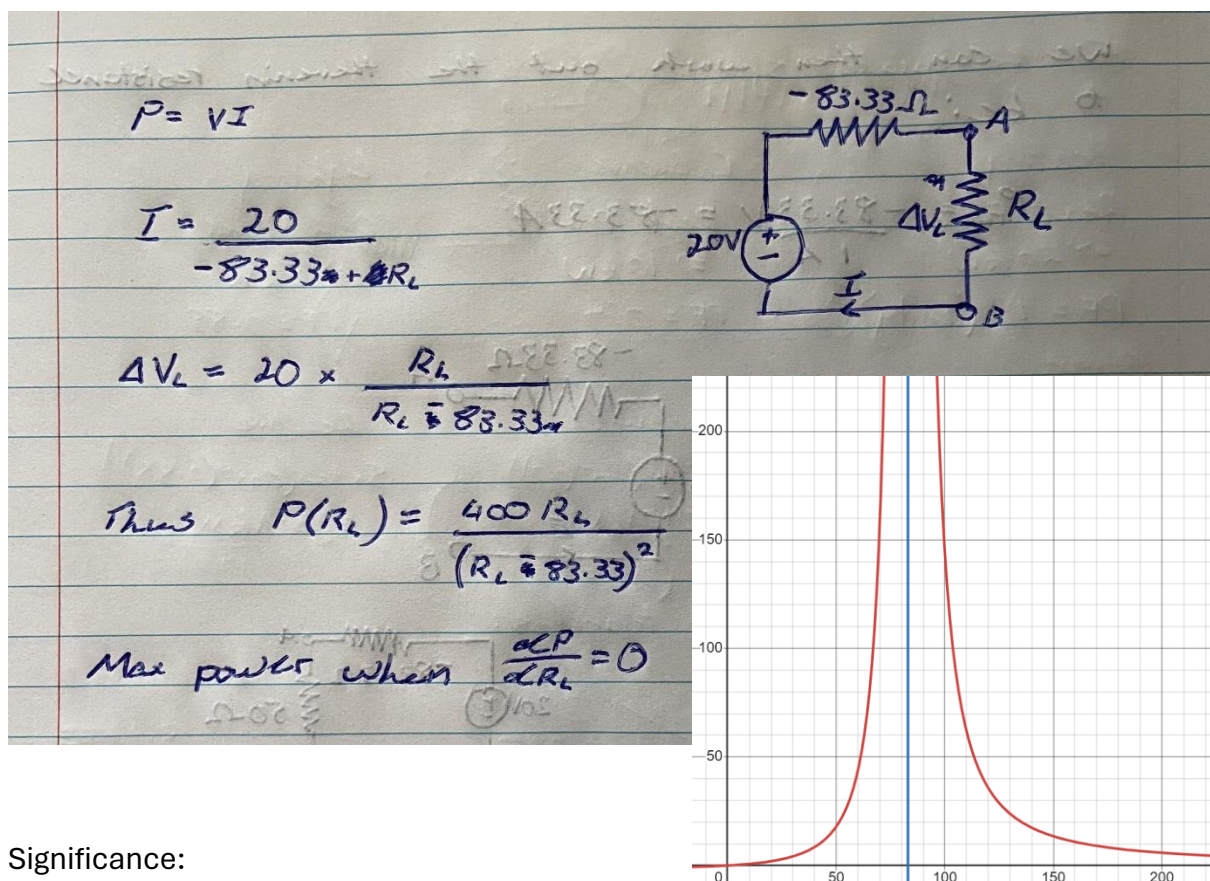 P = VI
I = 20 / (-83.33 + R_L)
ΔV_L = 20 × R_L / (R_L - 83.33)
Thus P(R_L) = 400 R_L / (R_L - 83.33)²
Max power when dP/dR_L = 0
-83.33Ω
A
20V
+
-
ΔV_L
R_L
I
B
200
150
100
50
0
50
100
150
200
Significance: